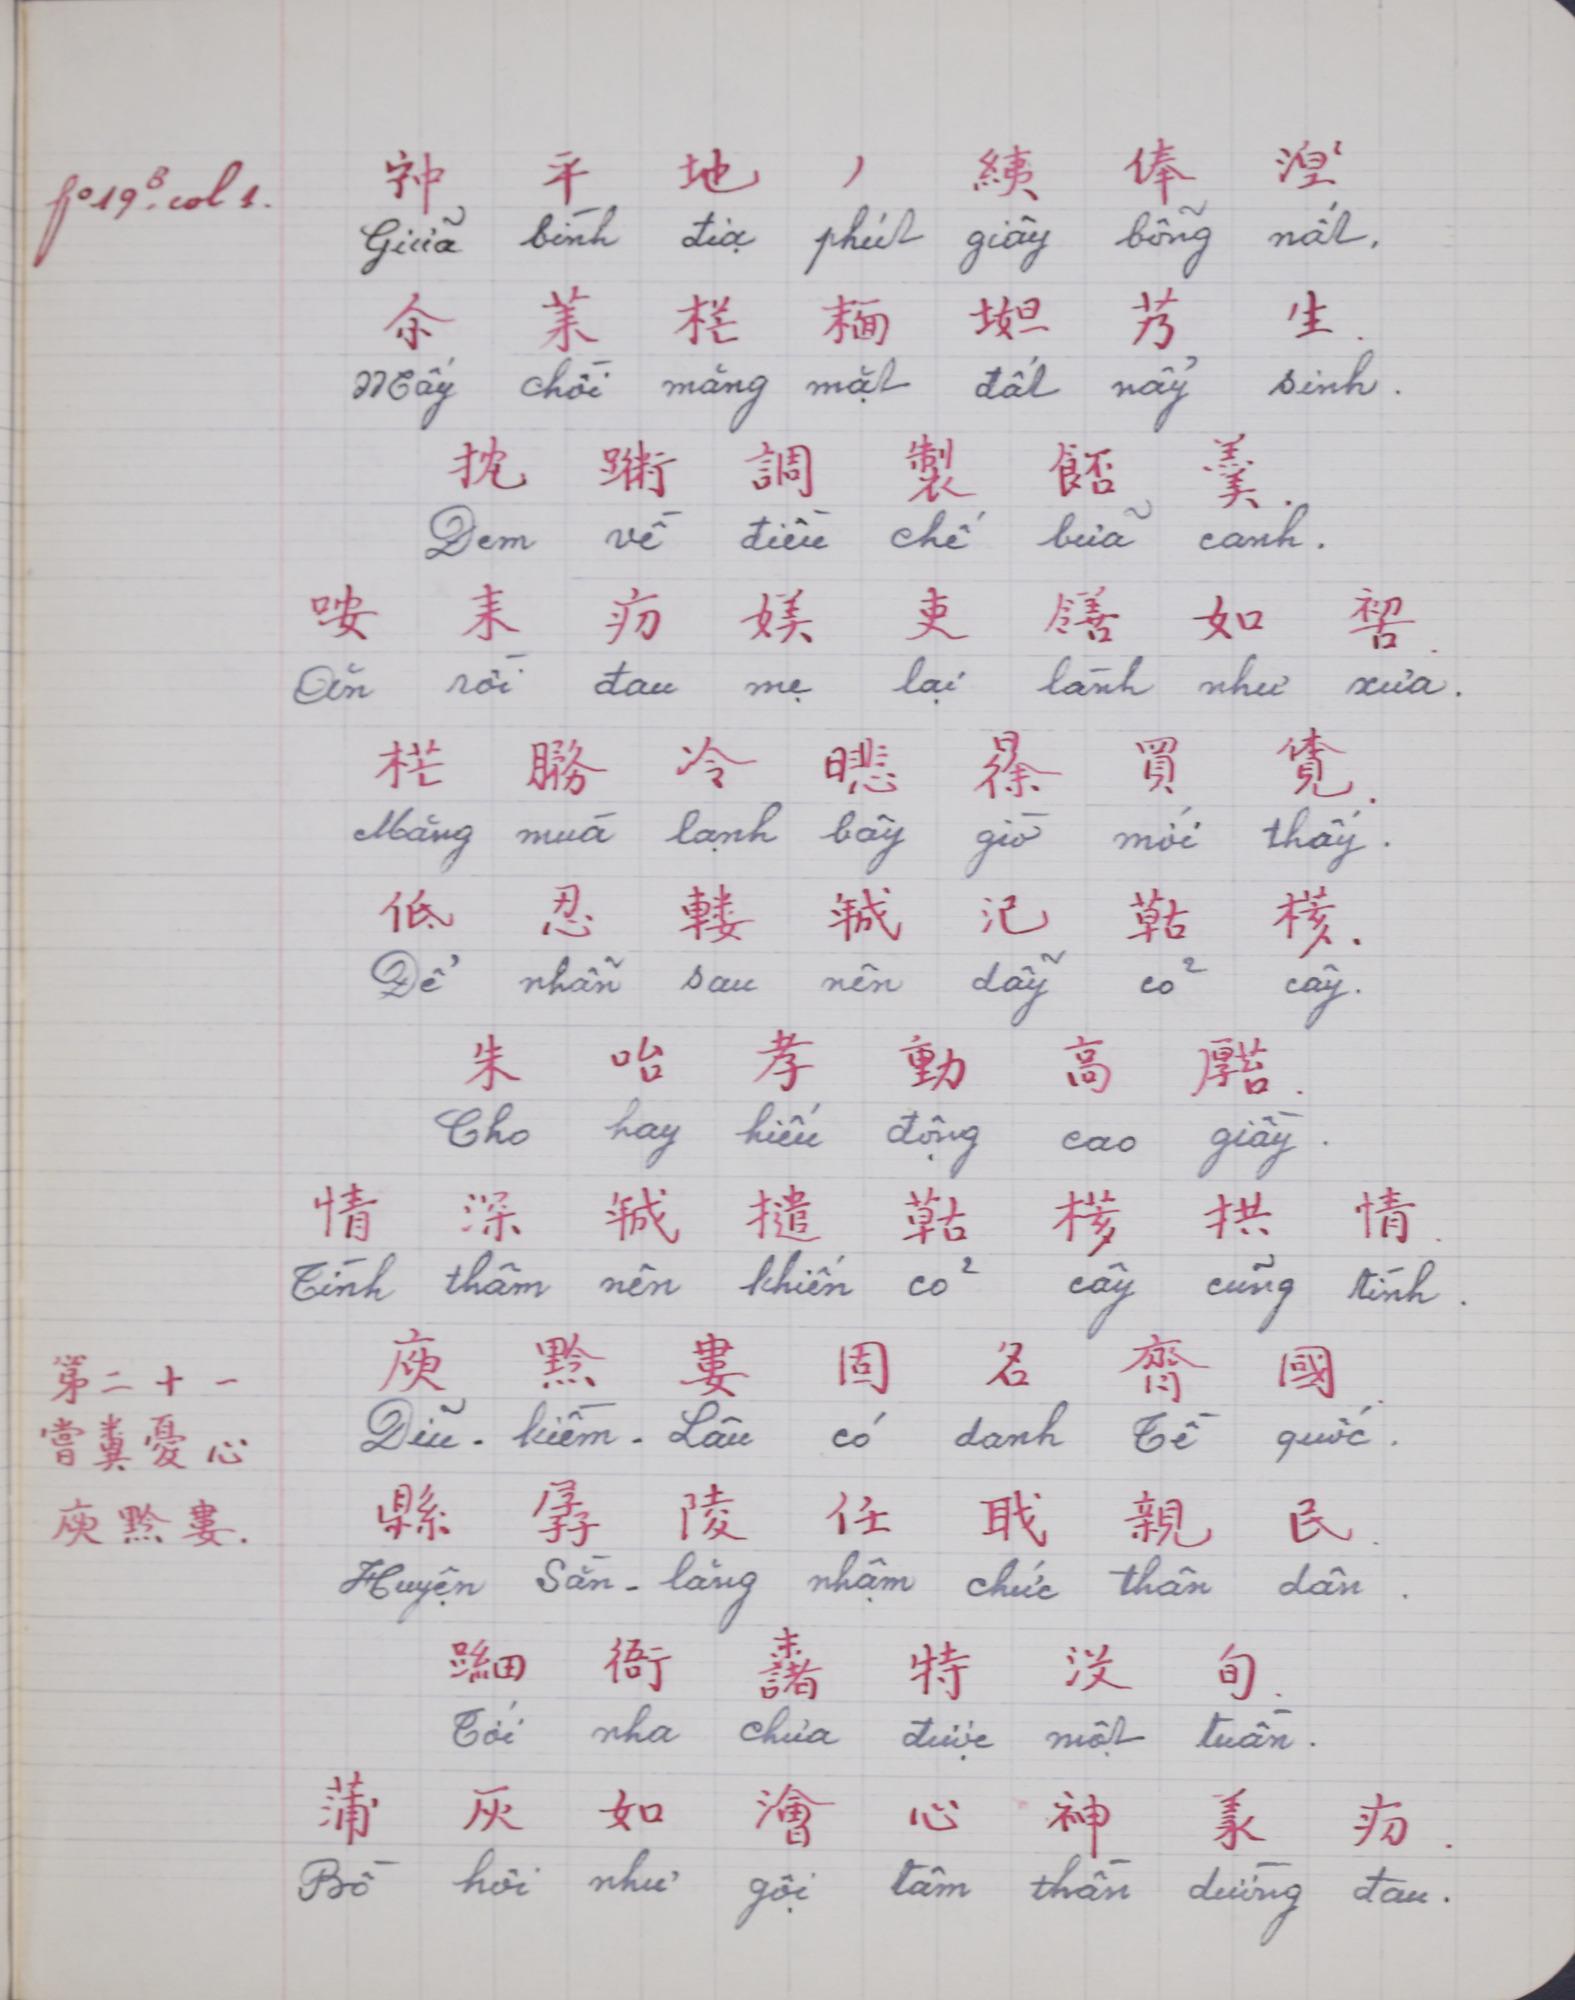 fo 19.B col 1.
平 地 丿 𦀊 俸 湼
Giữa bình địa phút giây bỗng nát,
余 茱 𣏒 𩈘 坦 艿 生.
Mấy chồi măng mặt đất nẩy sinh.
抌 𧗱 調 製 𩛷 羹.
Đem về điều chế bữa canh.
咹 耒 疠 媄 吏 𩜏 如 𠸗.
Ăn rồi đau mẹ lại lành như xưa.
𣏒 冷 買 覔.
Măng mùa lạnh bây giờ mới thấy.
低 忍 𨍦 𢧚 汜 𦹵 𣘃.
Để nhẫn sau nên dẫy cỏ cây.
朱 咍 孝 動 高 𠫅.
Cho hay hiếu động cao giầy.
情 深 𢧚 𢶒 𦹵 𣘃 拱 情.
Tình thâm nên khiến cỏ cây cũng tình.
第二十一
嘗糞憂心
庾黔婁.
庾 黔 婁 固 名 齊 國.
Dũu - kiềm - Lâu có danh Tề quốc.
縣 孱 陵 任 職 親 民.
Huyện Sằn - lăng nhậm chức thân dân.
𦁀 衙 𣗓 特 没 旬.
Tới nha chưa được một tuần.
蒲 灰 如 心 神 羕 疠.
Bồ hôi như gội tâm thần dường đau.